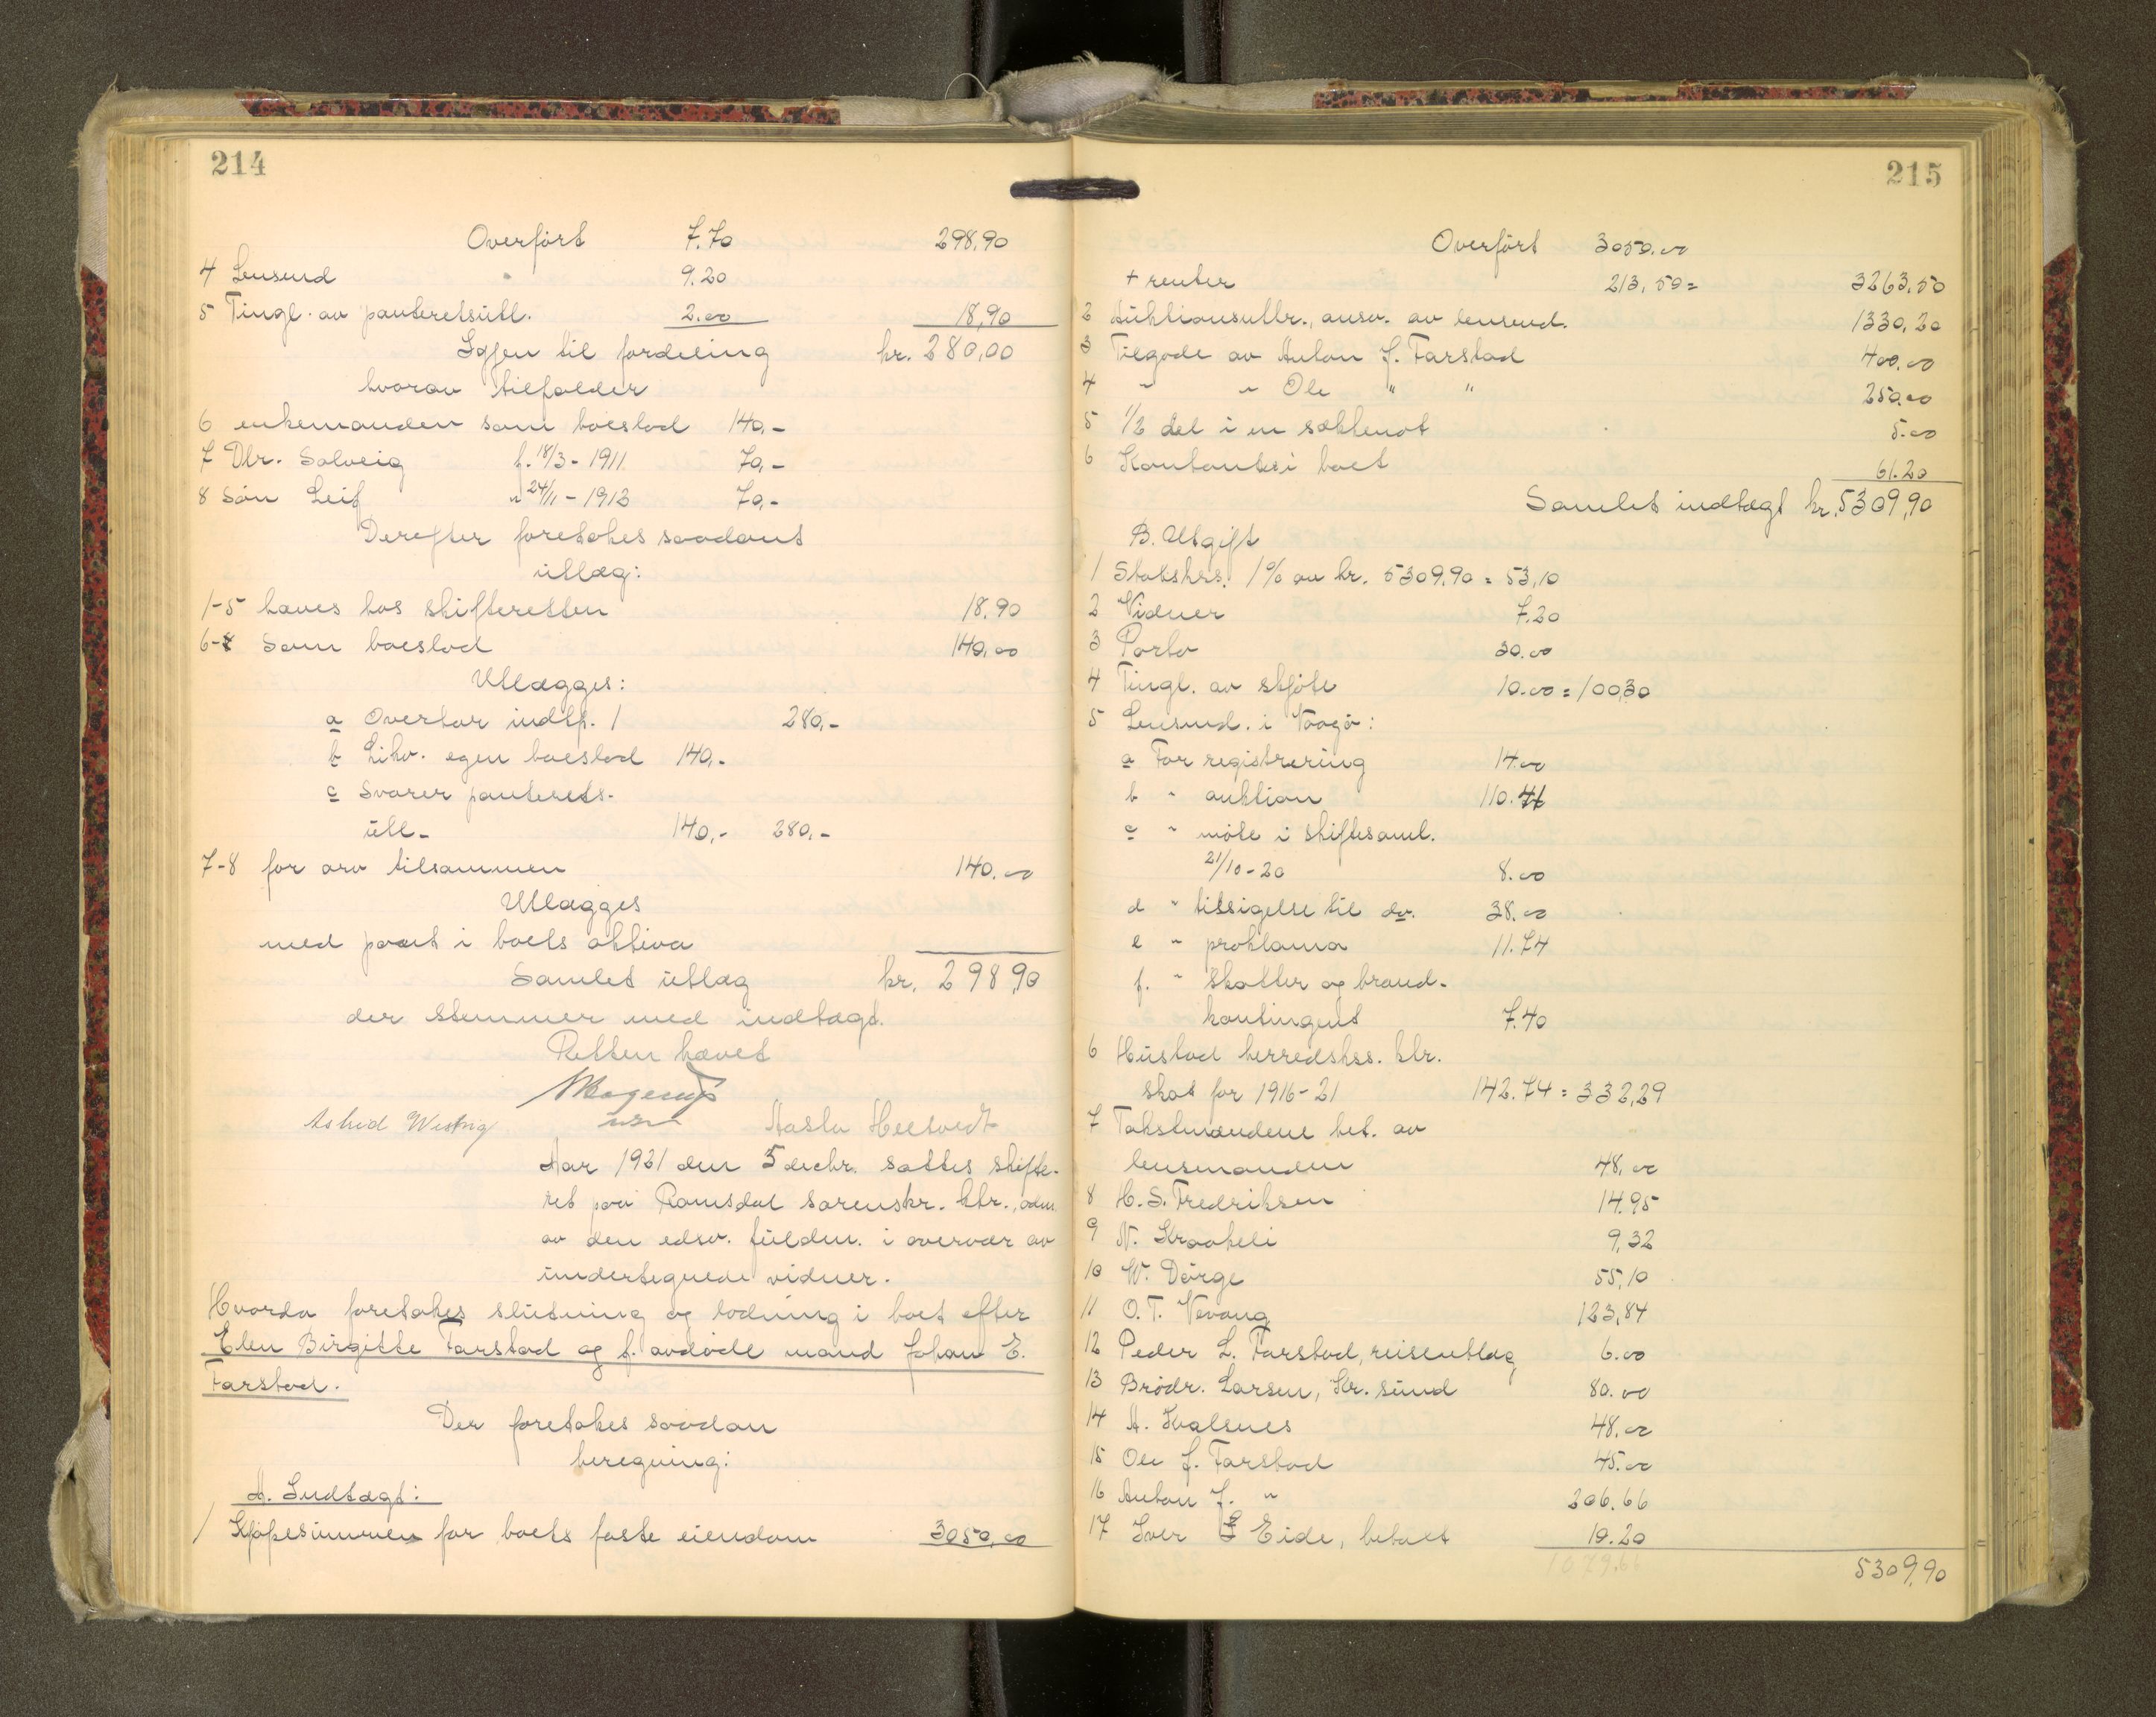 214
Overført 7.70 298,90
4 Lensmd 9.20
5 Tingl. av panteretsutl. 2.00 18,90
Igjen til fordeling kr. 280,00
hvorav tilfalder
6 enkemanden som boeslod 140,-
7 Dtr. Solveig f. 18/3 - 1911 70,-
8 Søn Leif " 24/11 - 1912 70,-
Derefter foretokes saadant
utlæg:
1-5 haves hos skifteretten 18,90
6-8 Som boeslod 140,00
Utlægges:
a Overtar indtp. 1 280,-
b Likv. egen boeslod 140,-
c Svarer panterets-
utl- 140,- 280,-
7-8 for arv tilsammen 140.00
Utlægges
med pant i boets aktiva
Samlet utlæg kr. 298,90
der stemmer med indtægt.
Retten hævet
Astrid Aasta
Aar 1921 den 5 decbr. sattes skifte-
ret paa Romsdal sorenskr. ktr., adm.
av den edsv. fuldm. i overvær av
undertegnede vidner.
Hvorda foretokes slutning og lodning i boet efter
Elen Birgitte Farstad og f. avdøde mand Johan E.
Farstad.
Der foretokes saadan
beregning:
A. Indtægt:
1 Kjøpesummen for boets faste eiendom 3050,00
215
Overført 3050.00
+ renter 213,50 = 3263,50
2 Auktionsutbr., ansv. av lensmd. 1330,20
3 Tilgode av Anton J. Farstad 400.00
4 " " Ole " " 250.00
5 1/2 del i en sættenot 5.00
6 Kontanter i boet 61.20
Samlet indtægt kr. 5309,90
B. Utgift
1 Statskrs. 1% av kr. 5309,90 = 53,10
2 Vidner 7.20
3 Porto 30.00
4 Tingl. av skjøte 10.00 = 100,30
5 Lensmd. i Vaagø:
a For registrering 14.00
b " auktion 110.41
c " møte i skiftesaml.
21/10-20 8.00
d " tilsigelse til do. 38.00
e " proklama 11.74
f. " Skatter og brand-
kontingent 7.40
6 Hustad herredskss. ktr.
skat for 1916-21 142.74 = 332,29
7 Takstmændene bet. av
lensmanden 48,00
8 H. S. Fredriksen 14.95
9 N. Kraakeli 9,32
10 W. Dørge 55,10
11 O. T. Vevang 123,84
12 Peder L. Farstad, reiseutlæg 6.00
13 Brødr. Larsen, Kr. sund 80.00
14 A. Kvalsnes 48.00
15 Ole J. Farstad 45.00
16 Anton J. " 206.66
17 Iver Eide, betalt 10.20
1079.66 5309,90